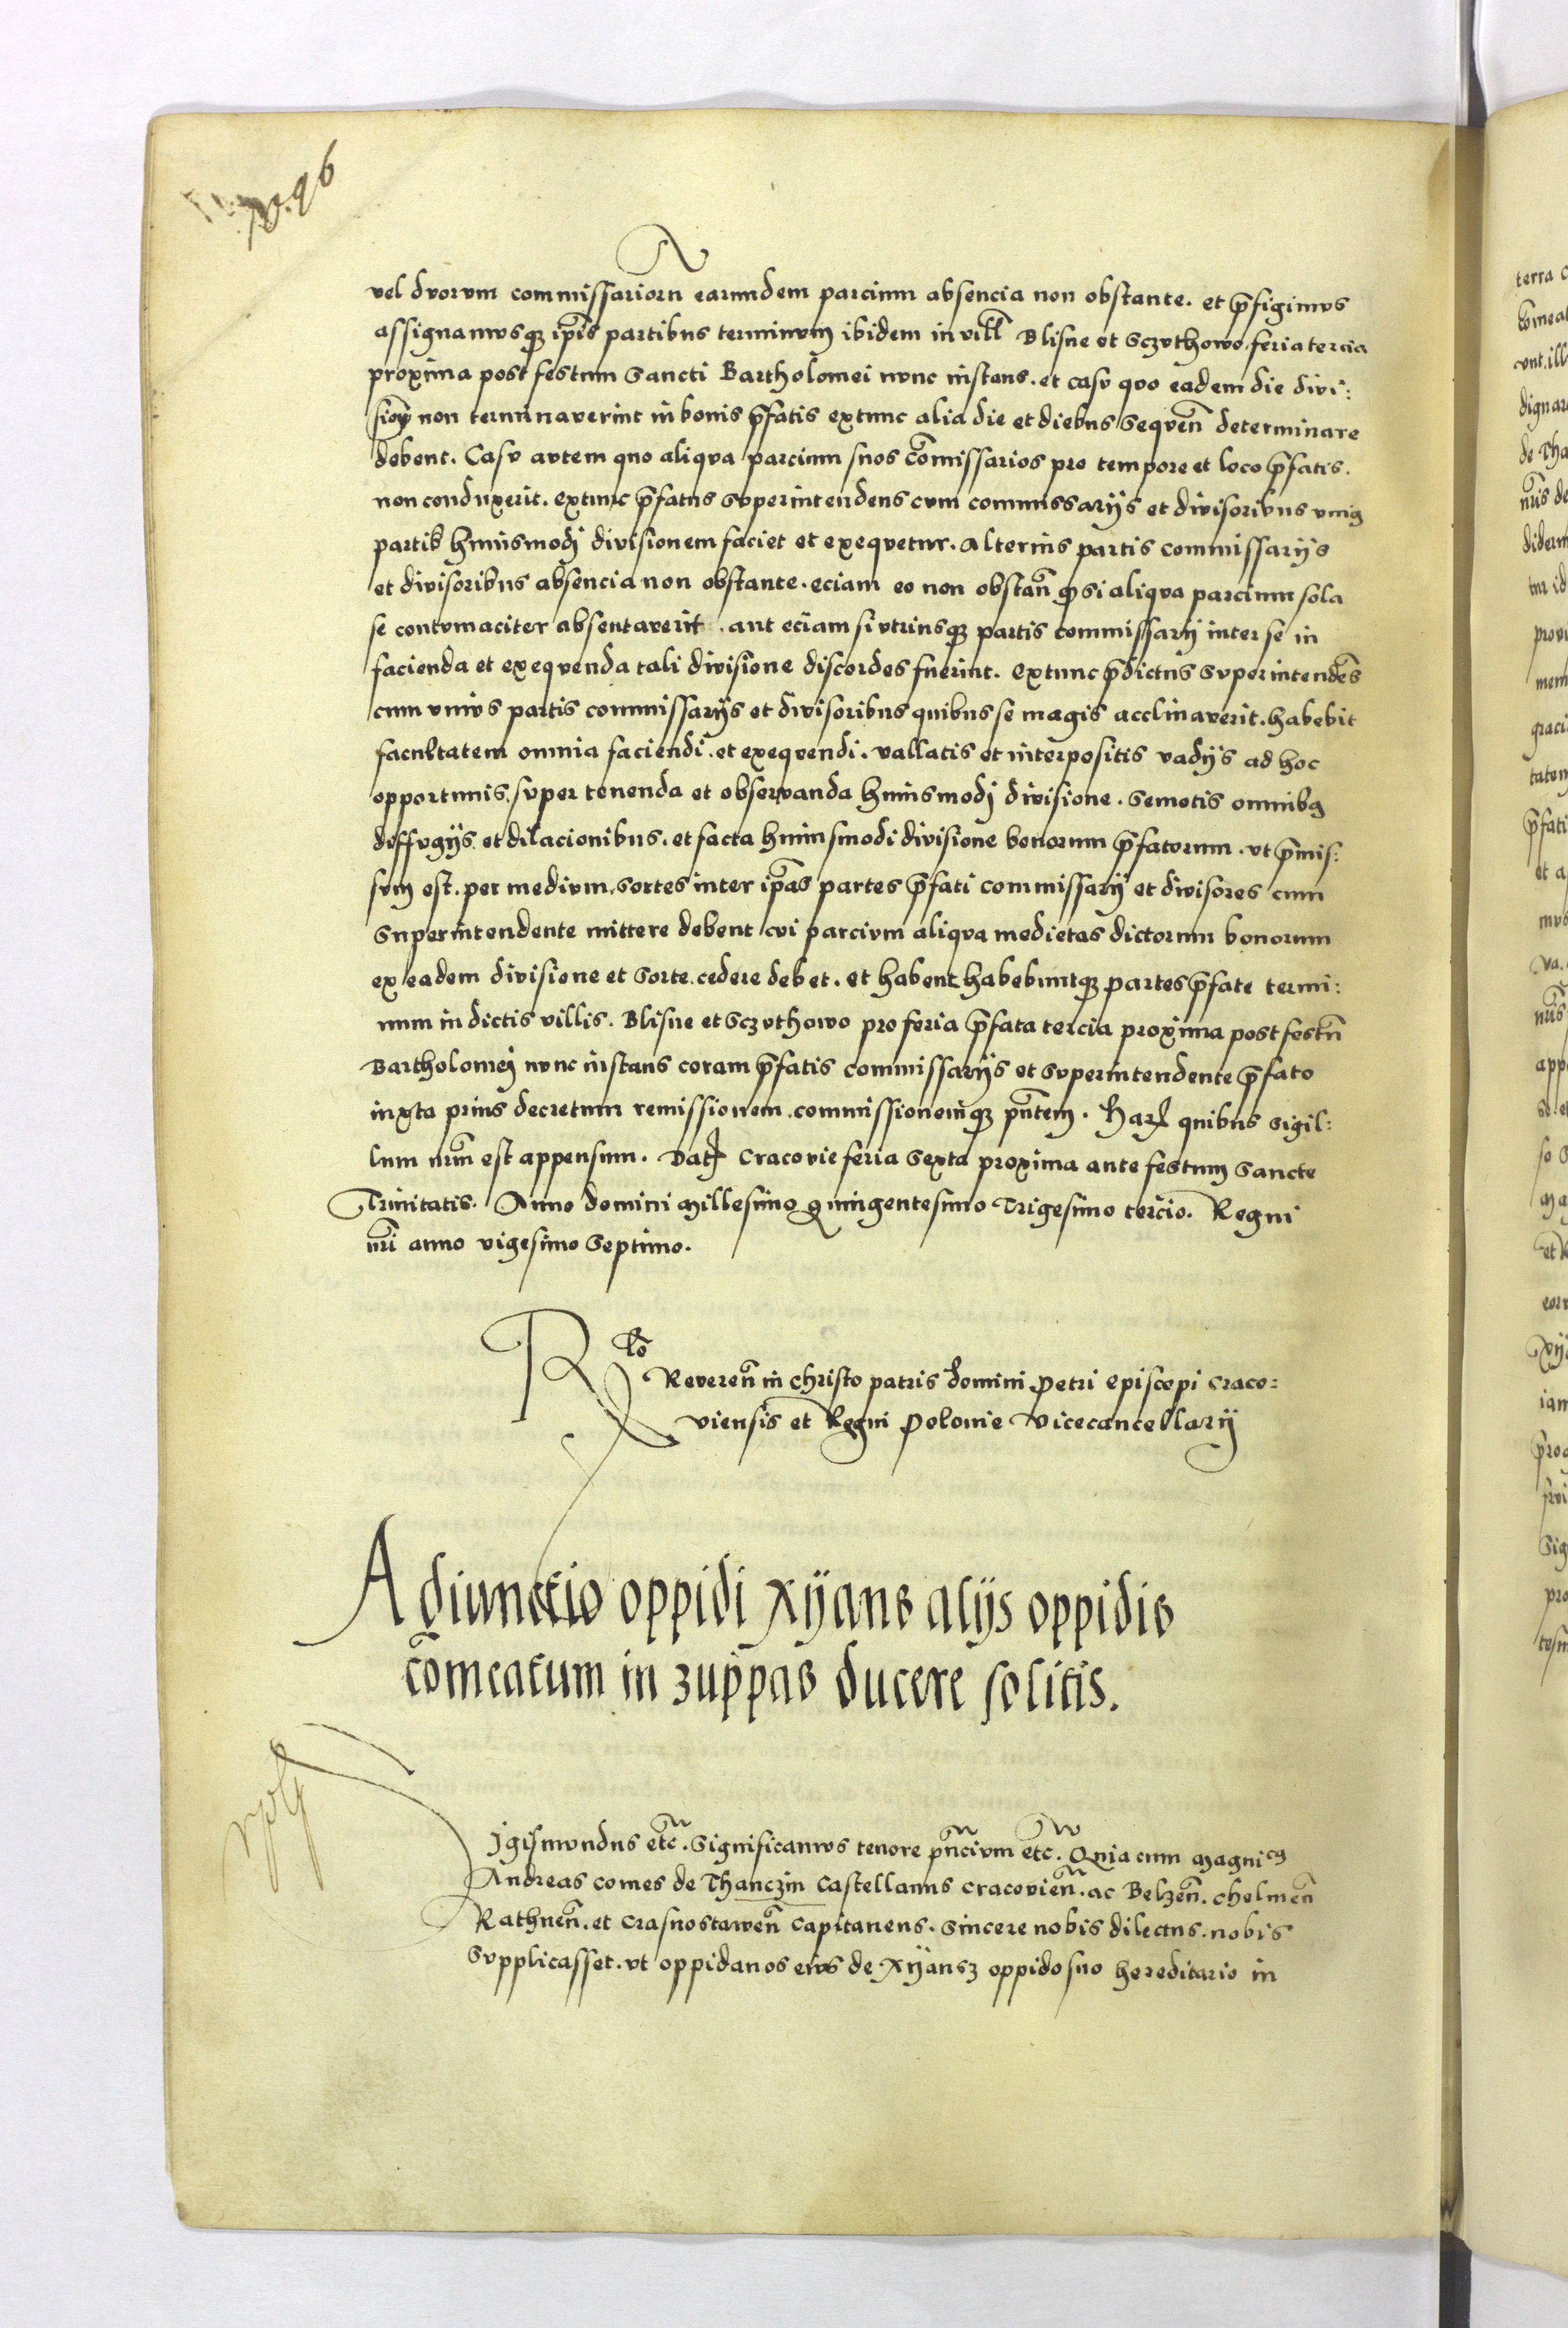 vel duorum commissariorũ earumdem parcium absencia non obstante. et p̃figimus
assignamusq₃ ip̃is partibus terminum ibidem in vill̃ Blisne et Sczuthowo feria tercia
proxima post festum Sancti Bartholomei nunc instans. et casu quo eadem die divi:
sionẽ non terminaverint in bonis p̃fatis extunc alia die et diebus sequeñ determinare
debent. Casu autem quo aliqua parcium suos cõmissarios pro tempore et loco p̃fatis.
non conduxerit. extunc p̃fatus superintendens cum commissarijs et divisoribus unius
partis huiusmodj divisionem faciet et exequetur. alterius partis commissarijs
et divisoribus absencia non obstante. eciam eo non obstañ ꝙ si aliqua parcium sola
se contumaciter absentaverit. aut eciam si utriusq₃ partis commissarij inter se in
facienda et exequenda tali divisione discordes fuerint. Extunc p̃dictus superintendẽs
cum unius partis commissarijs et divisoribus quibus se magis acclinaverit. habebit
facultatem omnia faciendi. et exequendi. vallatis et interpositis vadijs ad hoc
opportunis. super tenenda et observanda huiusmodj divisione. Semotis omnibꝰ
diffugijs et dilacionibus. et facta huiusmodi divisione bonorum p̃fatorum. ut p̃mis:
sum est. per medium, sortes inter ip̃as partes p̃fati commissarij et divisores cum
Superintendente mittere debent cui parcium aliqua medietas dictorum bonorum
ex eadem divisione et sorte. cedere debet. et habent habebuntq₃ partes p̃fate termi:
num in dictis villis. Blisne et Sczuthowo pro feria p̃fata tercia proxima post festũ
Bartholomej nunc instans coram p̃fatis commissarijs et superintendente p̃fato
iuxta prius decretum remissionem. commissionemq₃ pñtem. Harꝝ quibus sigil:
lum nrm̃ est appensum. Datꝭ Cracovie feria sexta proxima ante festum Sancte
Trinitatis. Anno domini Millesimo Quingentesimo Trigesimo tercio. Regni
nrĩ anno vigesimo septimo.
Rlõ
Revereñ in christo patris domini Petri episcopi Craco:
viensis et Regni Polonie Vicecancellarij
Adiunctio oppidi Xÿans alijs oppidis
cõmeatum in zuppas ducere solitis.
Igismundus etc̃. Significamus tenore pñcium etc̃. Quia cum Magnicꝰ
Andreas comes de Thanczin Castellanus Cracovieñ. ac Belzeñ. Chelmeñ
Rathneñ. et Crasnostaweñ Capitaneus. Sincere nobis dilectus. nobis
supplicasset. ut oppidanos eius de Xÿansz oppido suo hereditario in